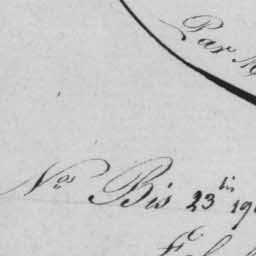 Par M
Nos Bis 23 bis 19